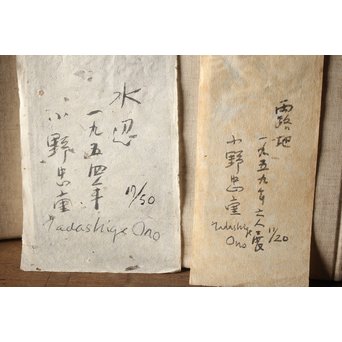 水辺
一九五四年
小野忠重
17/50
Tadashige Ono
露地
一九五九年
小野忠重
/20
Tadashige
Ono